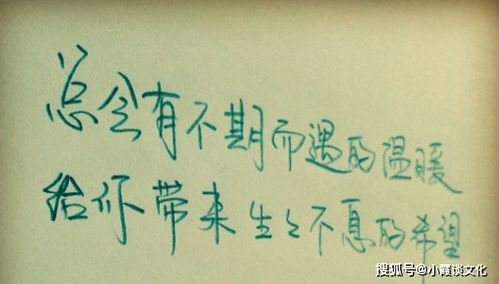 总会有不期而遇的温暖
给你带来生々不息的希望
搜狐号@小霞谈文化